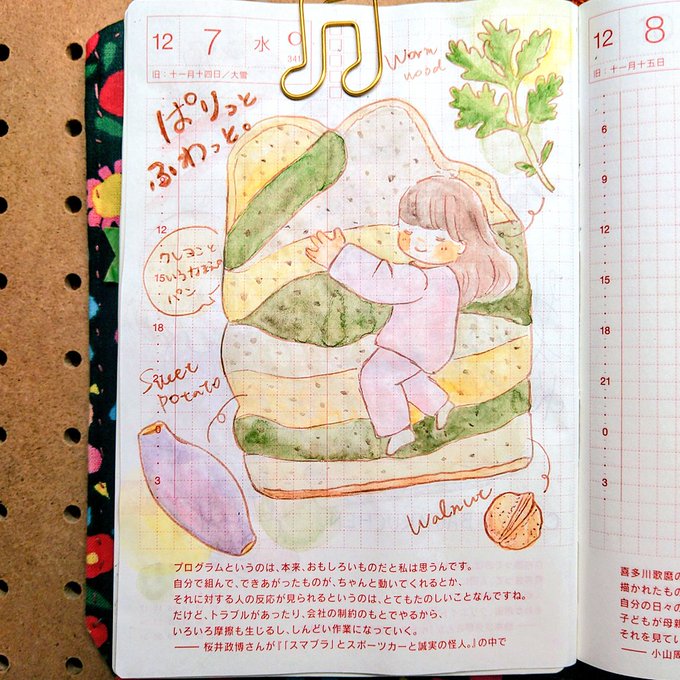 12 7 水
341
旧：十一月十四日／大雪
Worm
wood
ぱりっと
ふわっと。
クレヨンと
パン
12
15
18
Sweet
potato
0
3
Walnut
プログラムというのは、本来、おもしろいものだと私は思うんです。
自分で組んで、できあがったものが、ちゃんと動いてくれるとか、
それに対する人の反応が見られるというのは、とてもたのしいことなんですね。
だけど、トラブルがあったり、会社の制約のもとでやるから、
いろいろ摩擦も生じるし、しんどい作業になっていく。
——桜井政博さんが『「スマブラ」とスポーツカーと誠実の怪人。』の中で
12 8
旧：十一月十五日
6
9
12
15
18
21
0
3
喜多川歌麿の
描かれたもの
自分の日々の
子どもが母親
それを見てい
——小山周